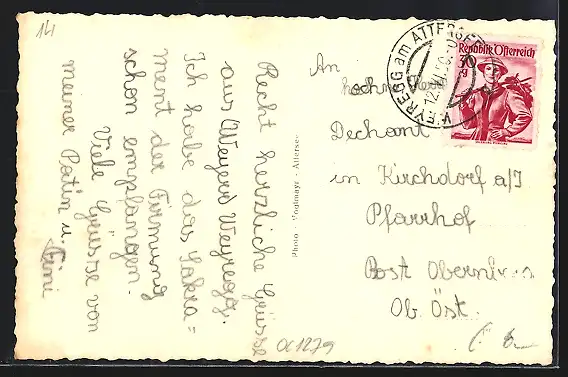 14
Recht herzliche Grüsse
aus Weyere Weyregg.
Ich habe das Sakra=
ment der Firmung
schon empfangen.
Viele Grüsse von
meiner Patin u.
Photo - Vogtmayr - Attersee
WEYREGG am ATTERSEE
12.
Republik Österreich
30
g
An
hochw.
Dechant
in Kirchdorf a/I
Pfarrhof
Post
Ob. Öst.
α1279